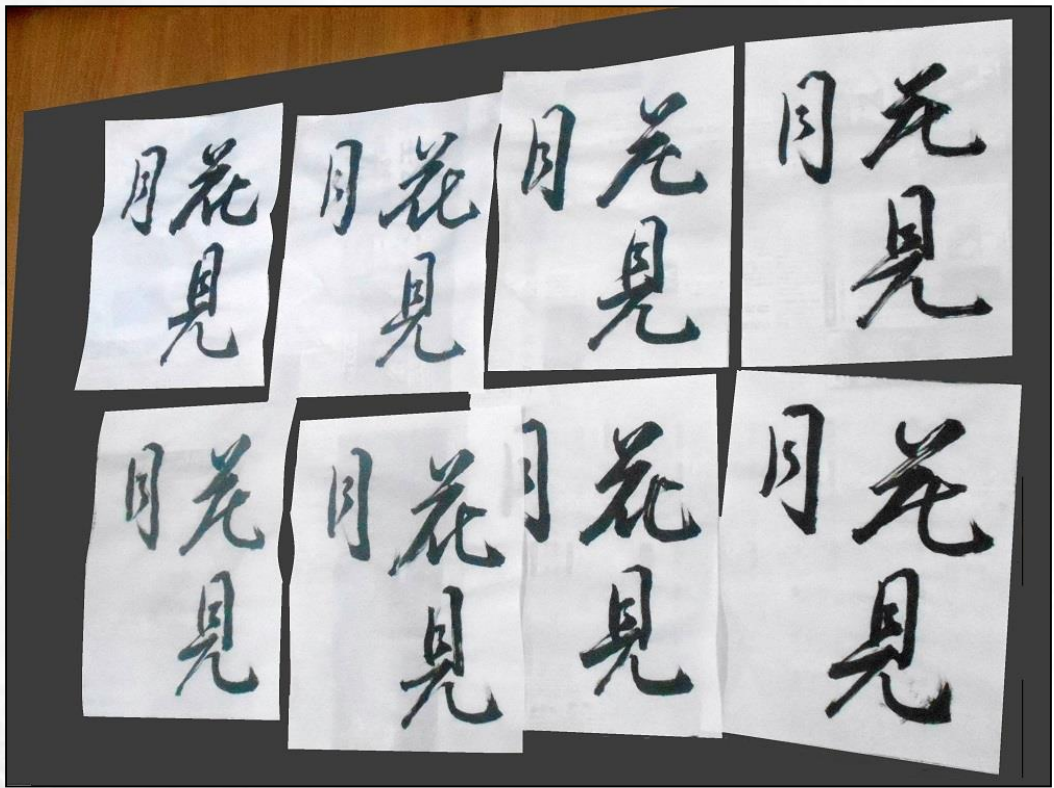 花見
月
花見
月
花見
月
花見
月
花見
月
花見
月
花見
月
花見
月